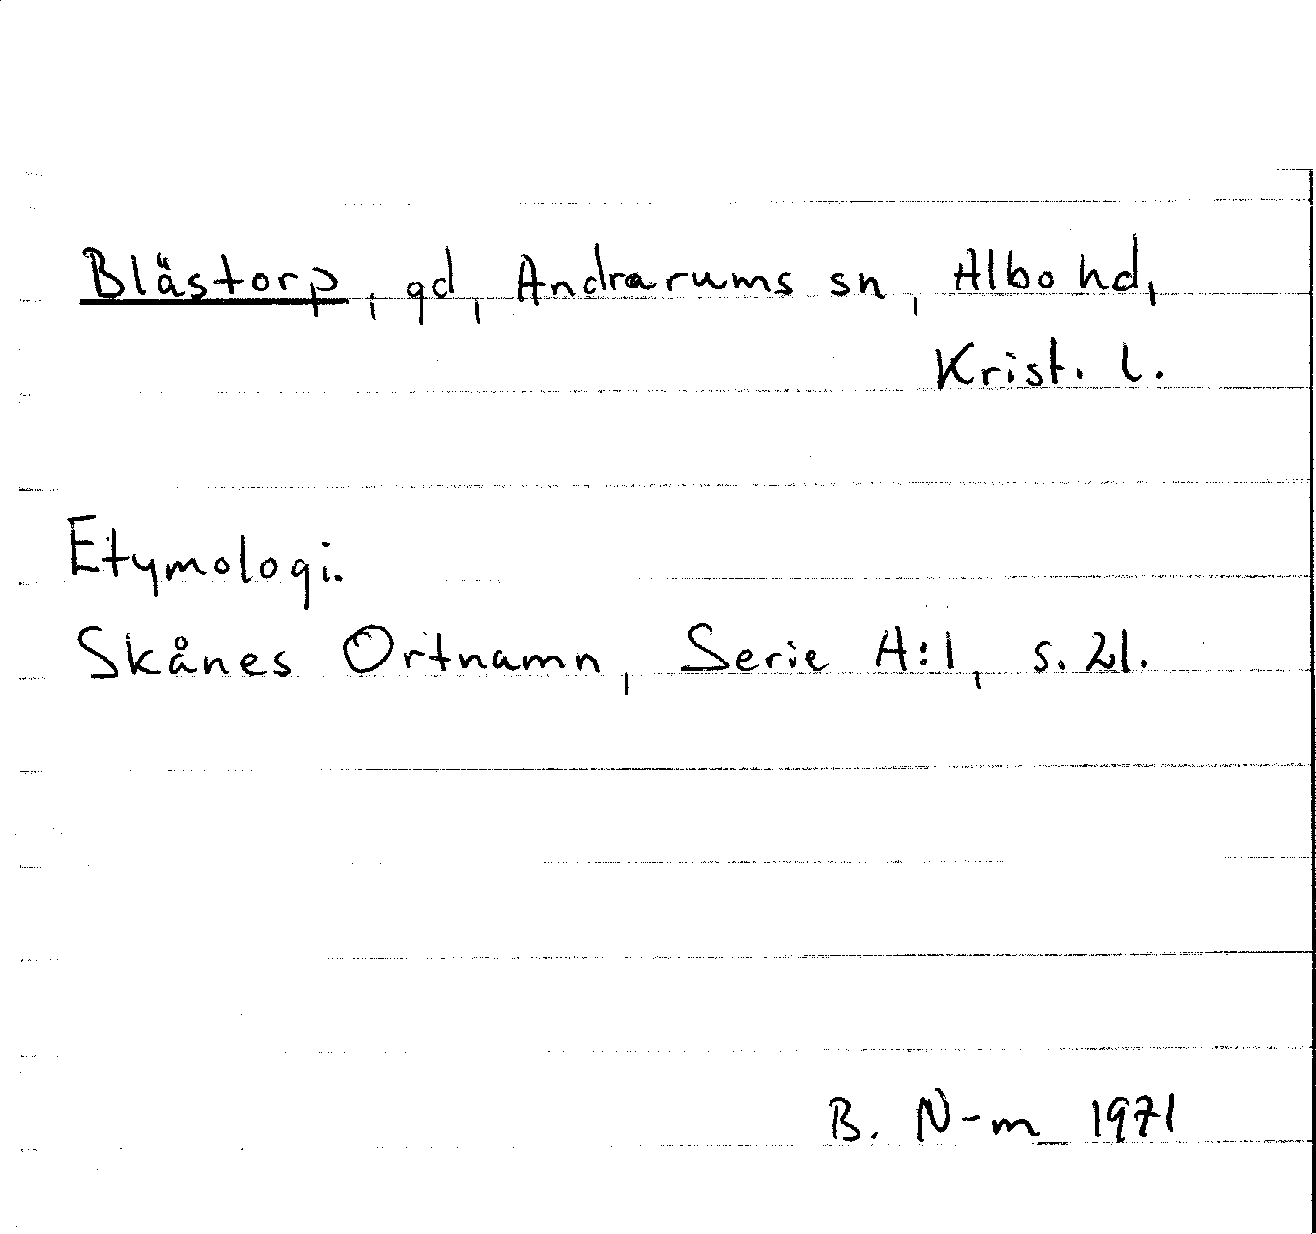 Blästorp, gd, Andrarums sn, Albo hd,
Krist. l.
Etymologi.
Skånes Ortnamn, Serie A:1, s. 21.
B. N-m 1971